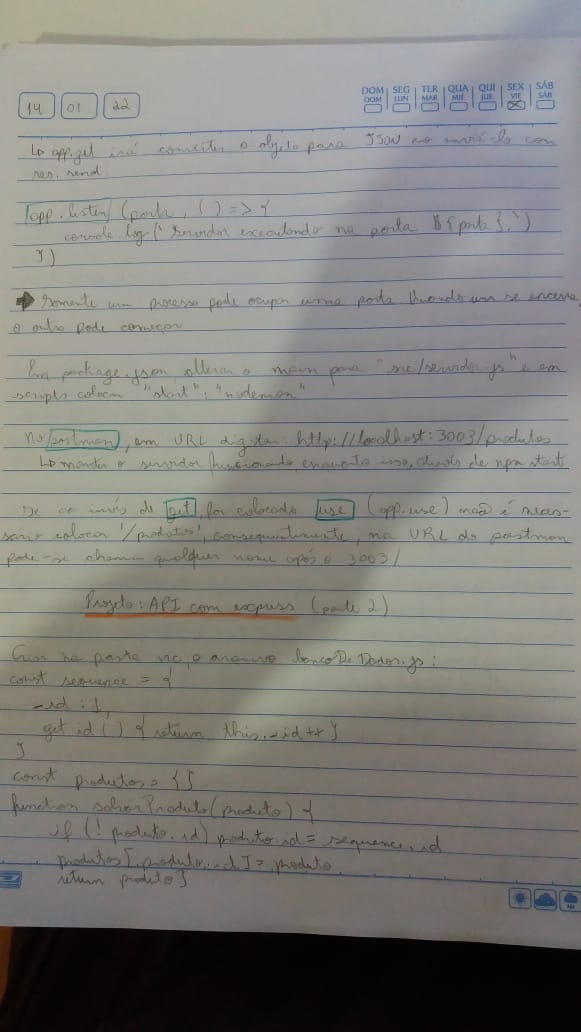 14 01 22
DOM SEG TER QUA QUI SEX SÁB
DOM LUN MAR MIÉ JUE VIE SÁB
↳ app.get irá converter o objeto para JSON ao enviá-lo com
res.send
app.listen (porta, () => {
console.log(`Servidor executando na porta ${porta}.`)
})
➡ Somente um processo pode ocupar uma porta. Quando um se encerra,
o outro pode começar
Em package.json, alterar o main para "src/servidor.js" e em
scripts colocar "start": "nodemon"
No postman, em URL digitar: http://localhost:3003/produtos
↳ manter o servidor funcionando enquanto isso, através de npm start
Se ao invés de get, for colocado use (app.use) não é neces-
sário colocar '/produtos', consequentemente, na URL do postman
pode-se chamar qualquer nome após o 3003/
Projeto: API com express (parte 2)
Criar na pasta src, o arquivo bancoDeDados.js:
const sequence = {
_id: 1,
get id() { return this._id++ }
}
const produtos = {}
function salvarProduto(produto) {
if (! produto.id) produto.id = sequence.id
produtos[produto.id] = produto
return produto}